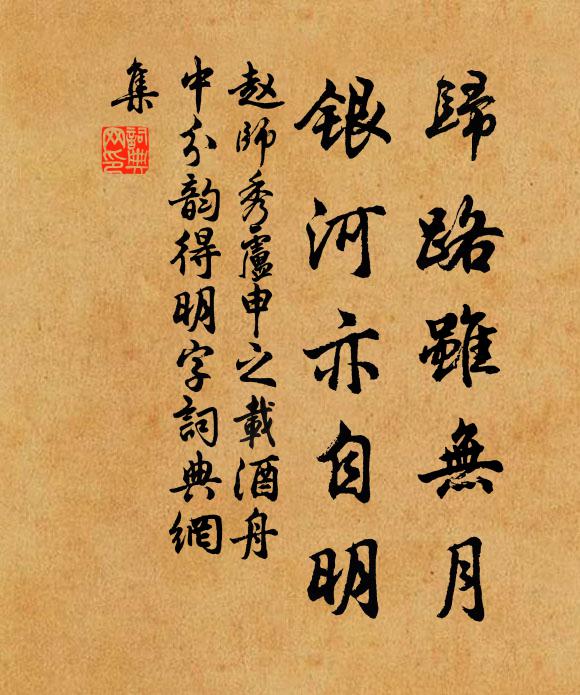 歸路雖無月
銀河亦自明
赵師秀盧申之載酒舟
中分韵得明字詞典網
集
詞典网印